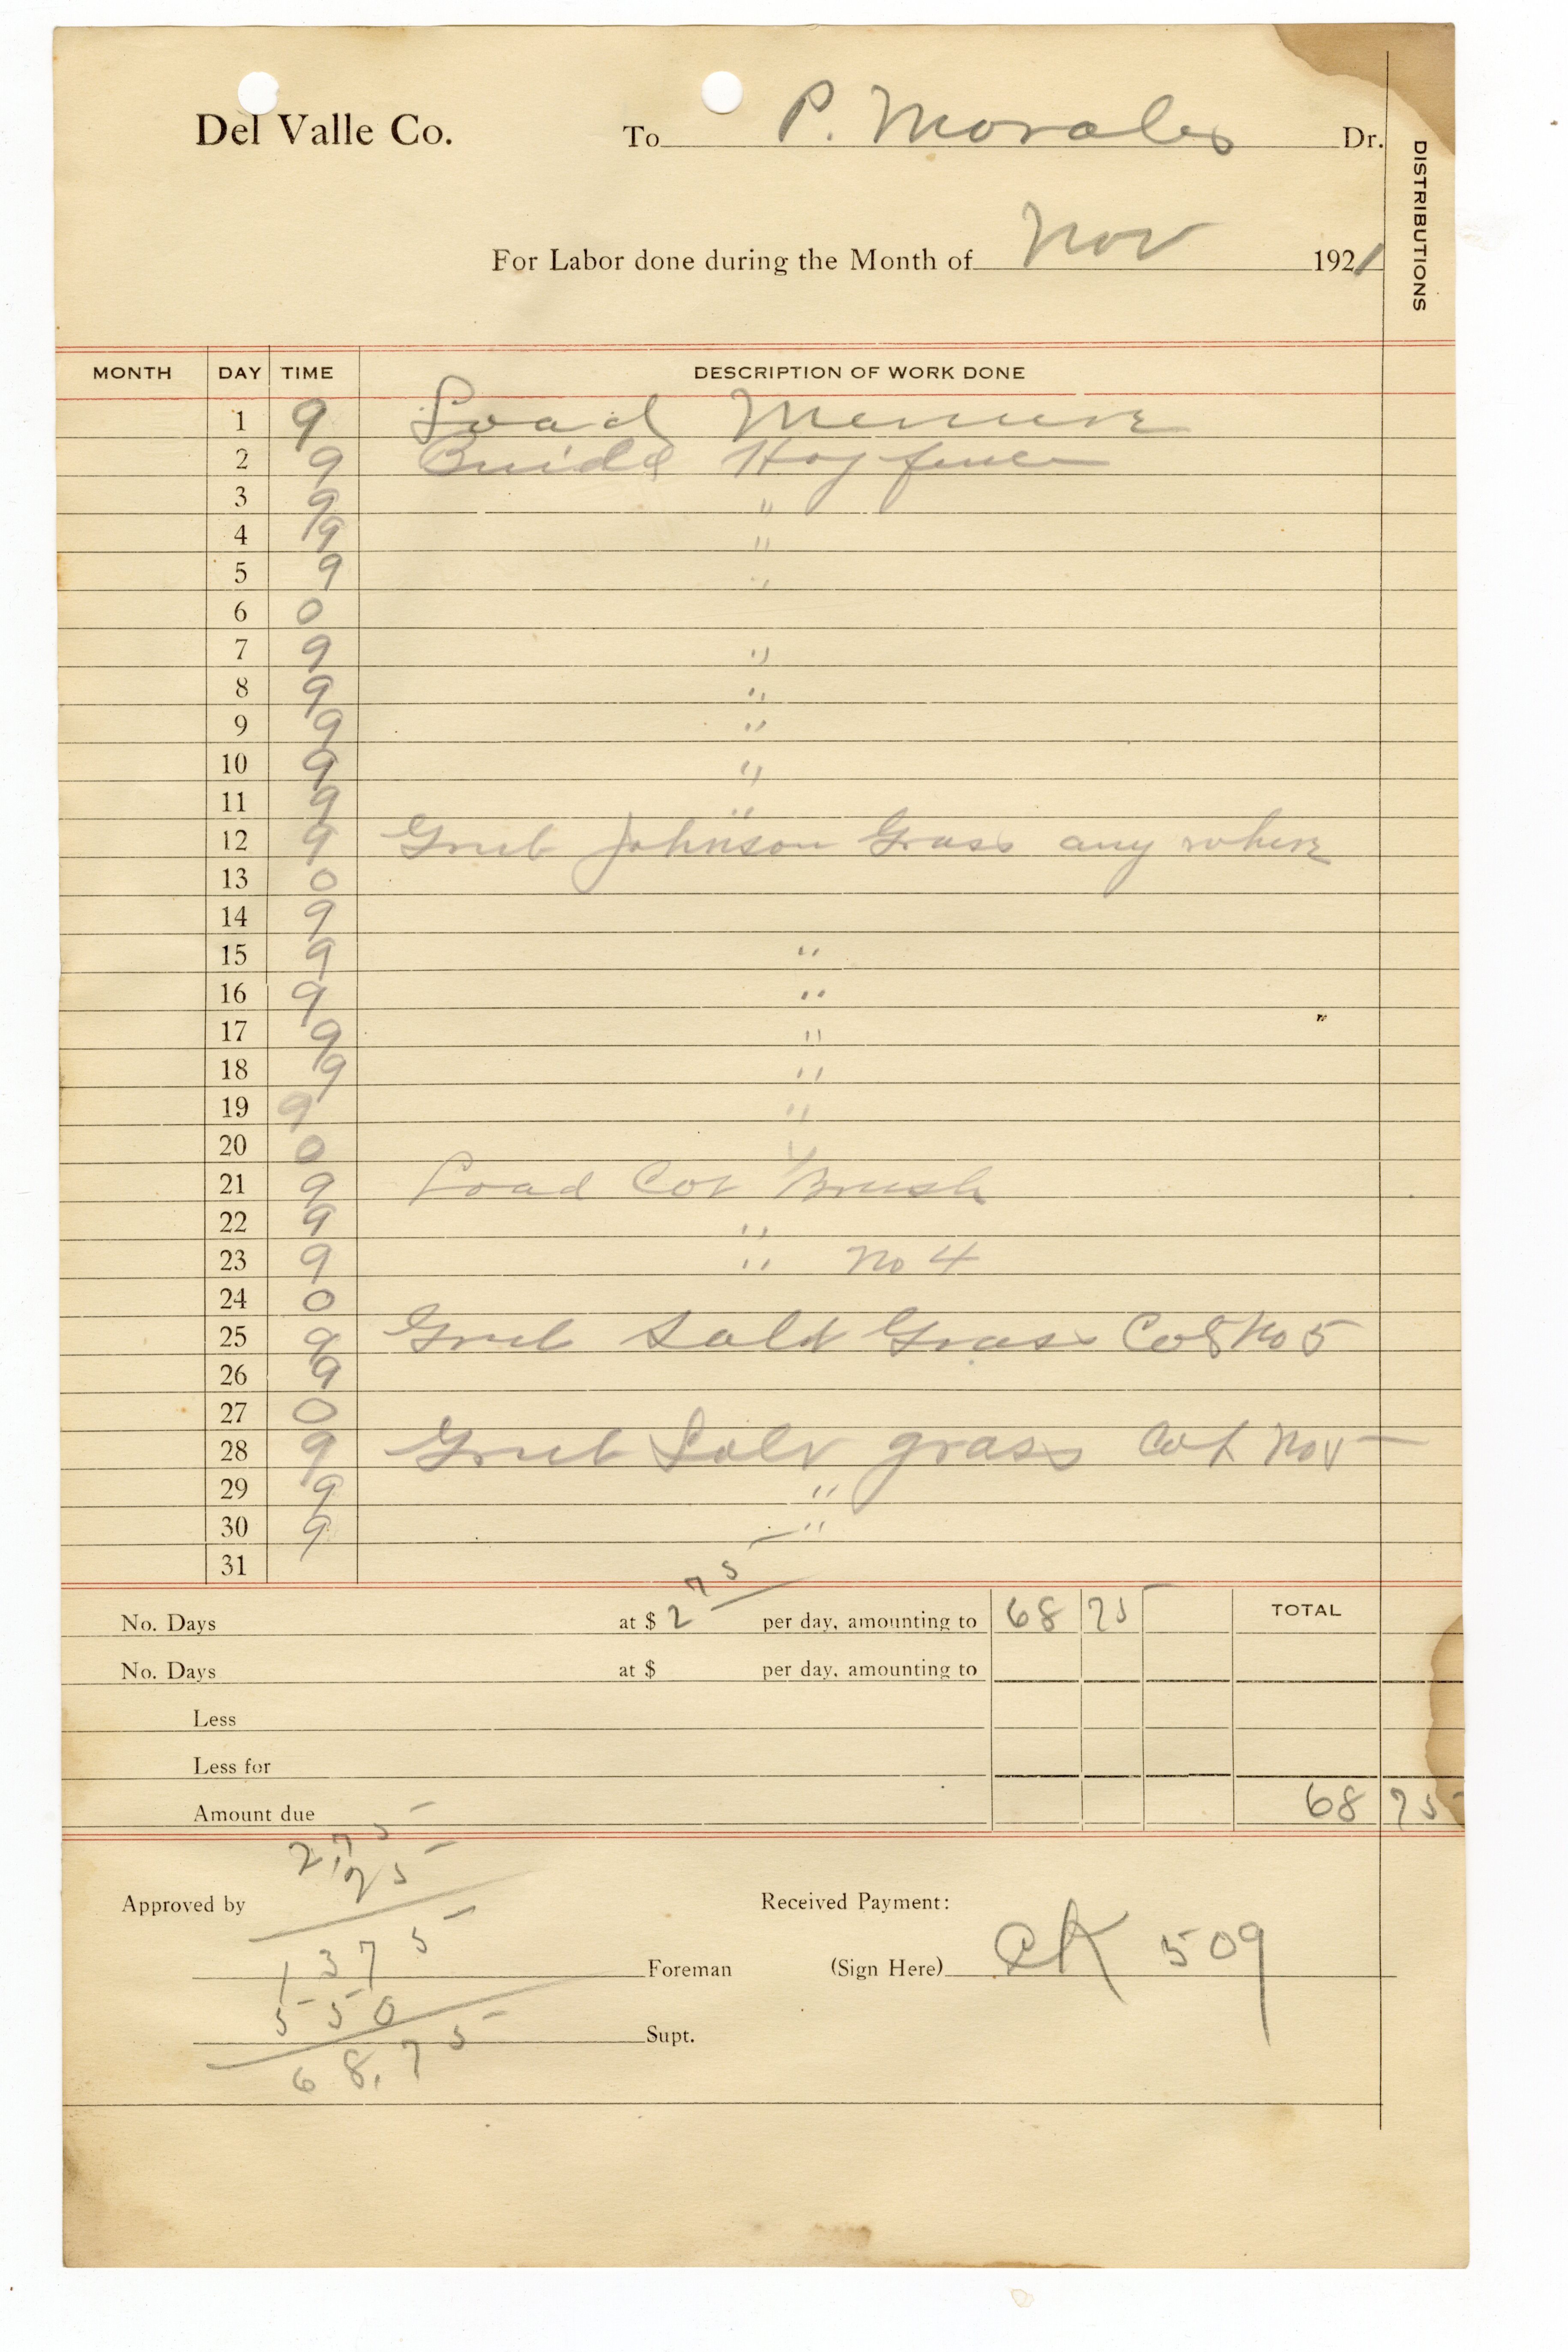 Del Valle Co. To P. Morales Dr.
DISTRIBUTIONS
For Labor done during the Month of Nov 1921
MONTH DAY TIME DESCRIPTION OF WORK DONE
1 9 Load Menure
2 9 Build Hog fence
3 9 "
4 9 "
5 9 "
6 0
7 9 "
8 9 "
9 9 "
10 9 "
11 9 "
12 9 Grub Johnson Grass any where
13 0
14 9
15 9 "
16 9 "
17 9 "
18 9 "
19 9 "
20 0
21 9 Load Cot Brush
22 9 "
23 9 " No 4
24 0
25 9 Grub Salt Grass Cot No 5
26 9
27 0
28 9 Grub Salt grass Cot No 5
29 9 "
30 9 "
31
No. Days at $ 2 75 per day, amounting to 68 75 TOTAL
No. Days at $ per day, amounting to
Less
Less for
Amount due 68 75
2.75
25
Approved by Received Payment:
1375
Foreman (Sign Here) CK 509
550
Supt.
68.75